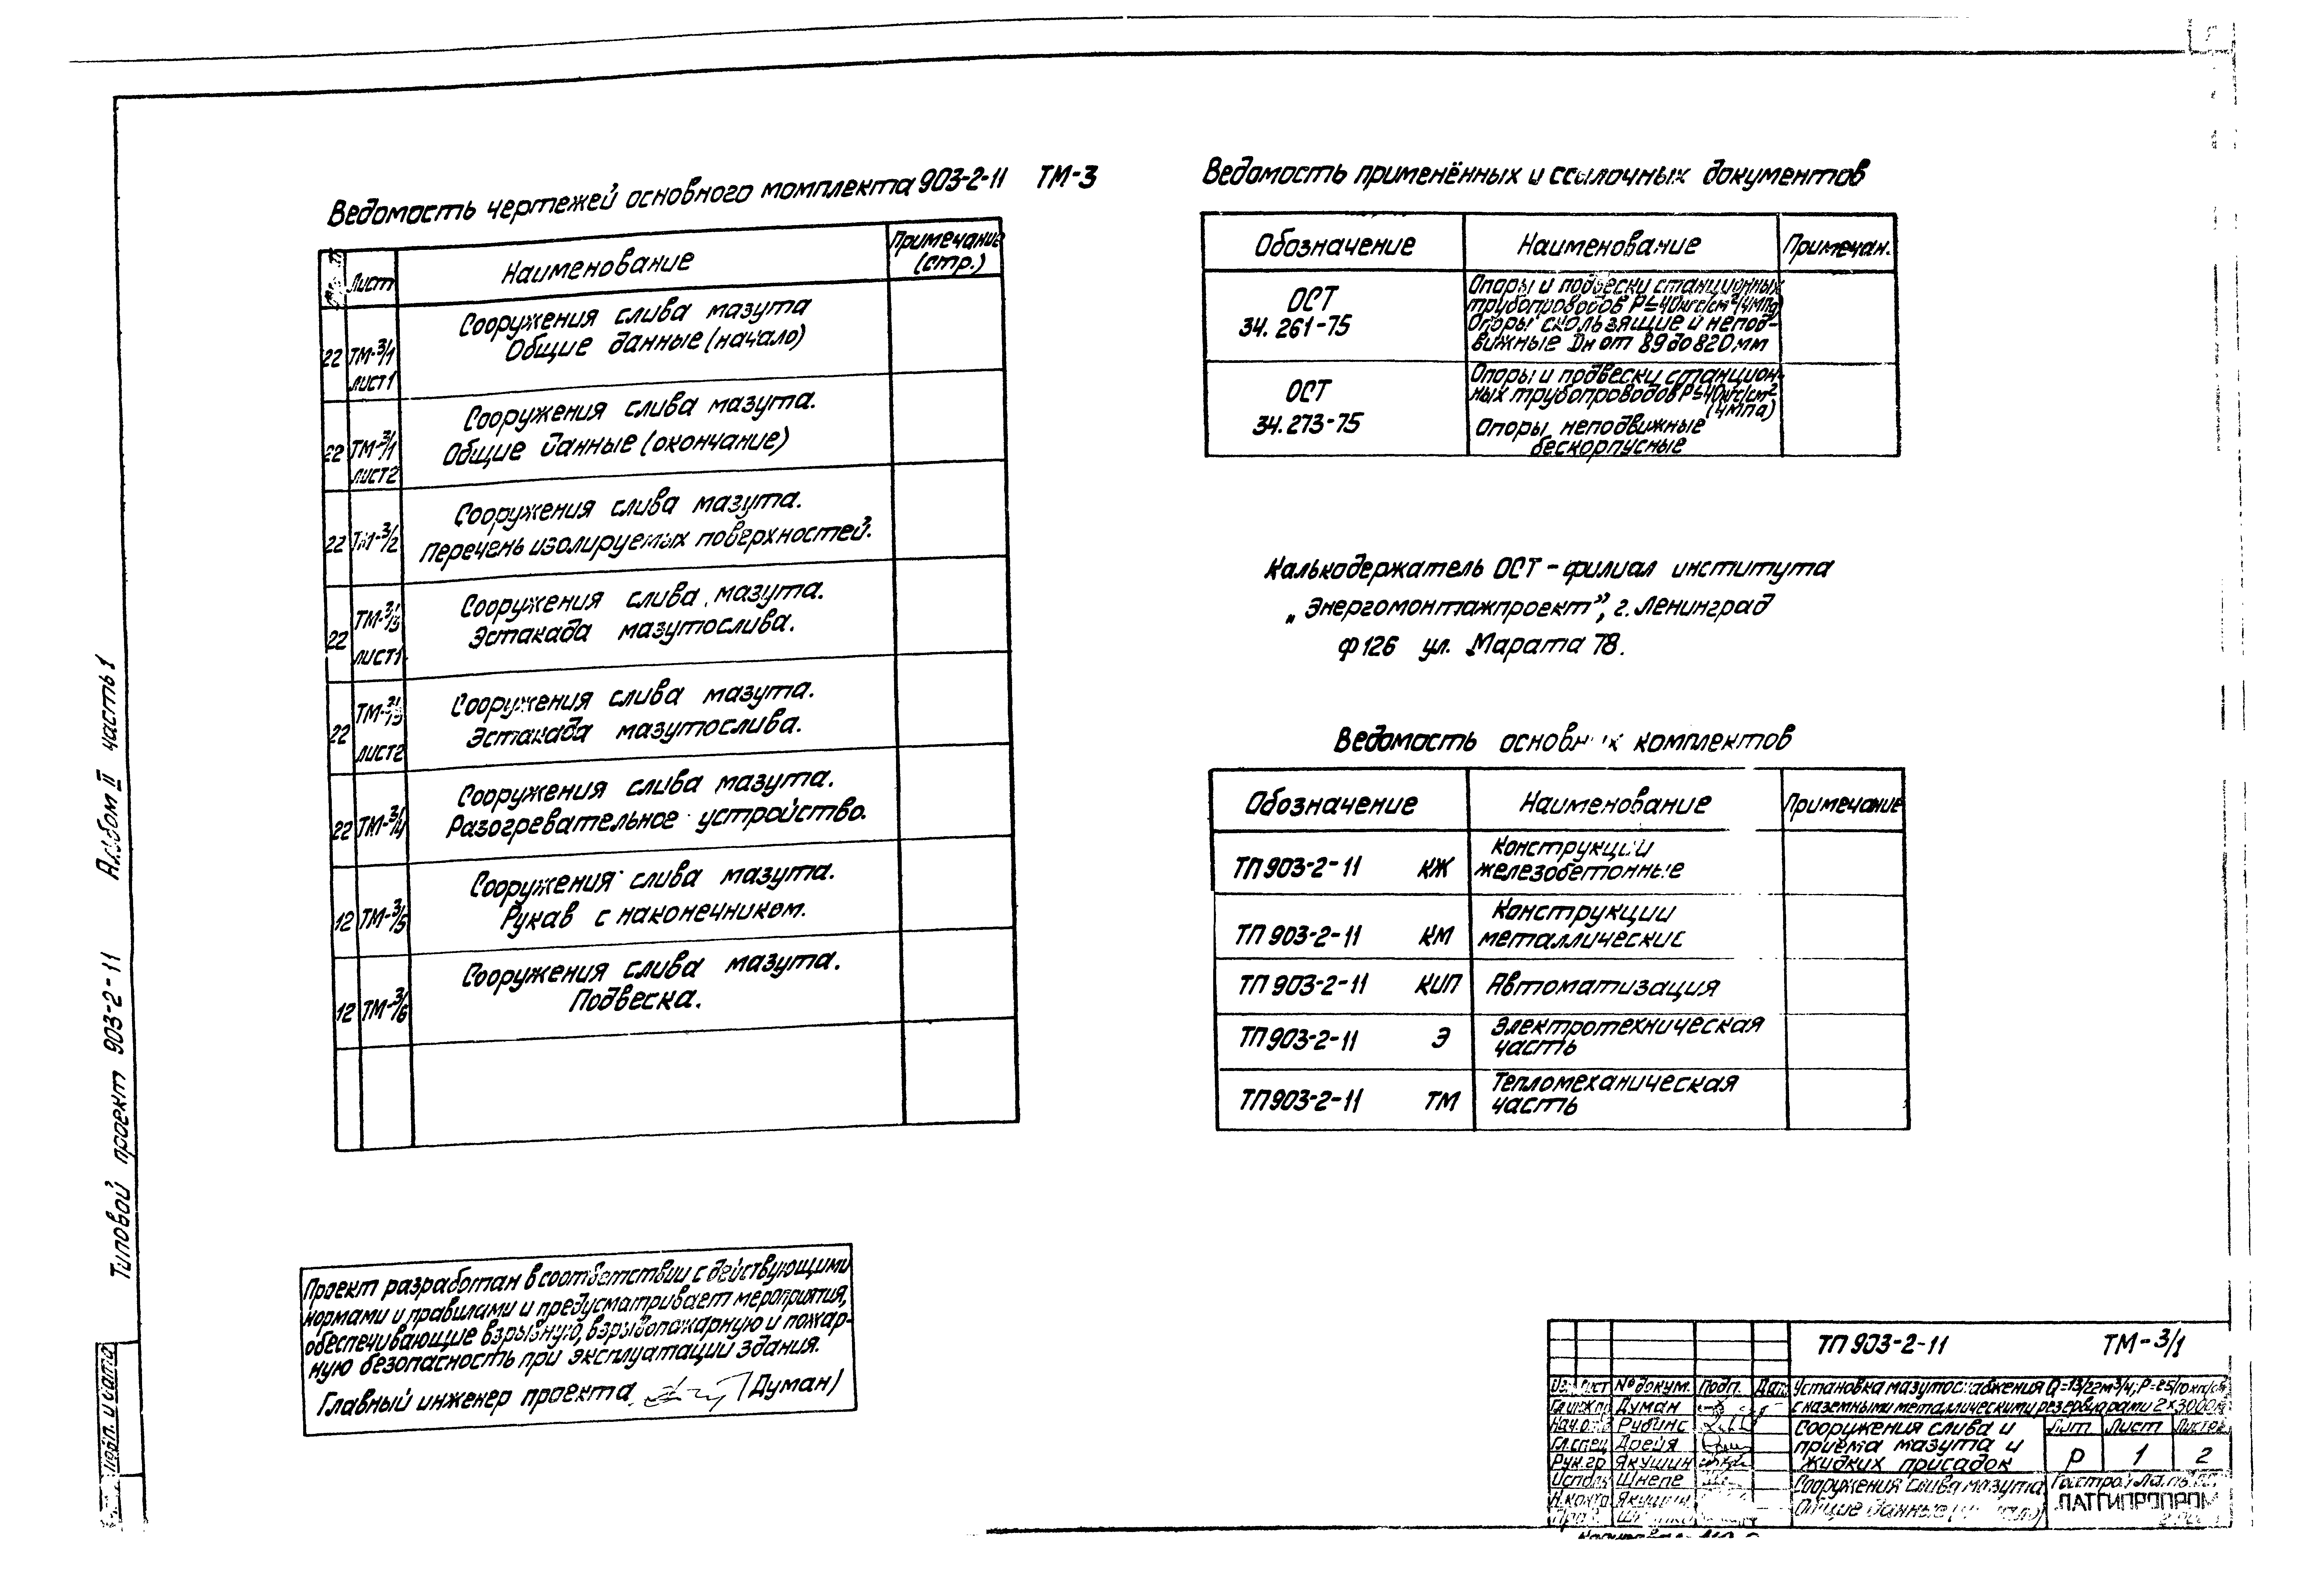 Типовой проект 903-2-11 Альбом II часть 1
Подп. и дата
Ведомость чертежей основного момплекта 903-2-11 ТМ-3
Лист Наименование Примечание
(стр.)
22 ТМ-3/1 лист1
Сооружения слива мазута
Общие данные (начало)
22 ТМ-3/1 лист2
Сооружения слива мазута.
Общие данные (окончание)
22 ТМ-3/2
Сооружения слива мазута.
Перечень изолируемых поверхностей.
22 ТМ-3/3 лист1.
Сооружения слива мазута.
Эстакада мазутослива.
22 ТМ-3/3 лист2
Сооружения слива мазута.
Эстакада мазутослива.
22 ТМ-3/4
Сооружения слива мазута.
Разогревательное устройство.
12 ТМ-3/5
Сооружения слива мазута.
Рукав с наконечником.
12 ТМ-3/6
Сооружения слива мазута.
Подвеска.
Ведомость применённых и ссылочных документов
Обозначение Наименование Примечан.
ОСТ
34. 261-75
Опоры и подвески станционных
трубопроводов Р≤40кгс/см² (4МПа)
Опоры скользящие и непод-
вижные Dн от 89 до 820 мм
ОСТ
34. 273-75
Опоры и подвески станцион-
ных трубопроводов Р≤40кгс/см²
(4мпа)
Опоры неподвижные
бескорпусные
Калькодержатель ОСТ - филиал института
„Энергомонтажпроект”, г. Ленинград
Ф 126 ул. Марата 78.
Ведомость основных комплектов
Обозначение Наименование Примечание
ТП 903-2-11 КЖ
Конструкции
железобетонные
ТП 903-2-11 КМ
Конструкции
металлические
ТП 903-2-11 КИП Автоматизация
ТП 903-2-11 Э
Электротехническая
часть
ТП 903-2-11 ТМ
Тепломеханическая
часть
Проект разработан в соответствии с действующими
нормами и правилами и предусматривает мероприятия,
обеспечивающие взрывную, взрывопожарную и пожар-
ную безопасность при эксплуатации здания.
Главный инженер проекта (Думан)
ТП 903-2-11 ТМ-3/1
Лист № докум. Подп. Дат
Установка мазутоснабжения Q=13/22м³/ч; Р=25/10
с наземными металлическими резервуарами 2×3000
Гл.инж.пр Думан
Нач.о Рубинс
Гл.спец Дрейя
Рук.гр Якушин
Исполн Шнепе
Н.контр Якушин
Сооружения слива и
приема мазута и
жидких присадок
Лит. Лист Листов
Р 1 2
Сооружения слива мазута
Общие данные (начало)
Госстрой
ЛАТГИПРОПРОМ